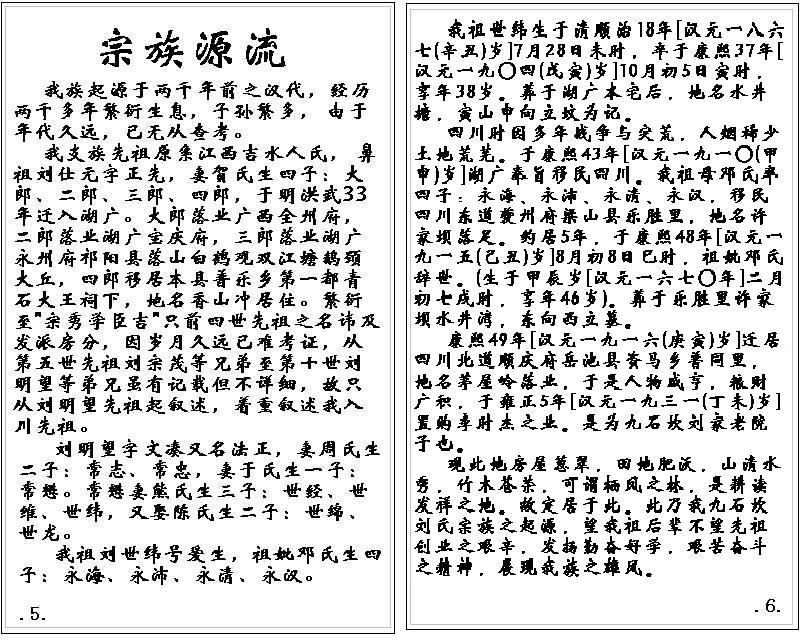 宗族源流
我族起源于两千年前之汉代，经历
两千多年繁衍生息，子孙繁多，由于
年代久远，已无从查考。
我支族先祖原系江西吉水人氏，鼻
祖刘仕元字正先，妻贺氏生四子：大
郎、二郎、三郎、四郎，于明洪武33
年迁入湖广。大郎落业广西全州府，
二郎落业湖广宝庆府，三郎落业湖广
永州府祁阳县落山白鹤观双江塘鹤颈
大丘，四郎移居本县普乐乡第一都青
石大王祠下，地名香山冲居住。繁衍
至"宗秀学臣吉"只前四世先祖之名讳及
发派房分，因岁月久远已难考证，从
第五世先祖刘宗茂等兄弟至第十世刘
明望等弟兄虽有记载但不详细，故只
从刘明望先祖起叙述，着重叙述我入
川先祖。
刘明望字文凑又名法正，妻周氏生
二子：常志、常忠，妻于氏生一子：
常懋。常懋妻熊氏生三子：世经、世
维、世纬，又娶陈氏生二子：世绵、
世龙。
我祖刘世纬号爱生，祖妣邓氏生四
子：永海、永沛、永清、永汉。
.5.
我祖世纬生于清顺治18年[汉元一八六
七(辛丑)岁]7月28日未时，卒于康熙37年[
汉元一九〇四(戊寅)岁]10月初5日寅时，
享年38岁。葬于湖广本宅后，地名水井
塘，寅山申向立坟为记。
四川时因多年战争与灾荒，人烟稀少
土地荒芜。于康熙43年[汉元一九一〇(甲
申)岁]湖广奉旨移民四川。我祖母邓氏率
四子：永海、永沛、永清、永汉，移民
四川东道夔州府梁山县乐胜里，地名许
家坝落足。约居5年，于康熙48年[汉元一
九一五(己丑)岁]8月初8日巳时，祖妣邓氏
辞世。(生于甲辰岁[汉元一六七〇年]二月
初七戌时，享年46岁)。葬于乐胜里许家
坝水井湾，东向西立墓。
康熙49年[汉元一九一六(庚寅)岁]迁居
四川北道顺庆府岳池县资马乡普同里，
地名茅屋岭落业，于是人物咸亨，粮财
广积，于雍正5年[汉元一九三一(丁未)岁]
置购李时杰之业。是为九石坎刘家老院
子也。
现此地房屋葱翠，田地肥沃，山清水
秀，竹木苍荣，可谓栖凤之林，是耕读
发祥之地。故定居于此。此乃我九石坎
刘氏宗族之起源，望我祖后辈不望先祖
创业之艰辛，发扬勤奋好学，艰苦奋斗
之精神，展现我族之雄风。
.6.